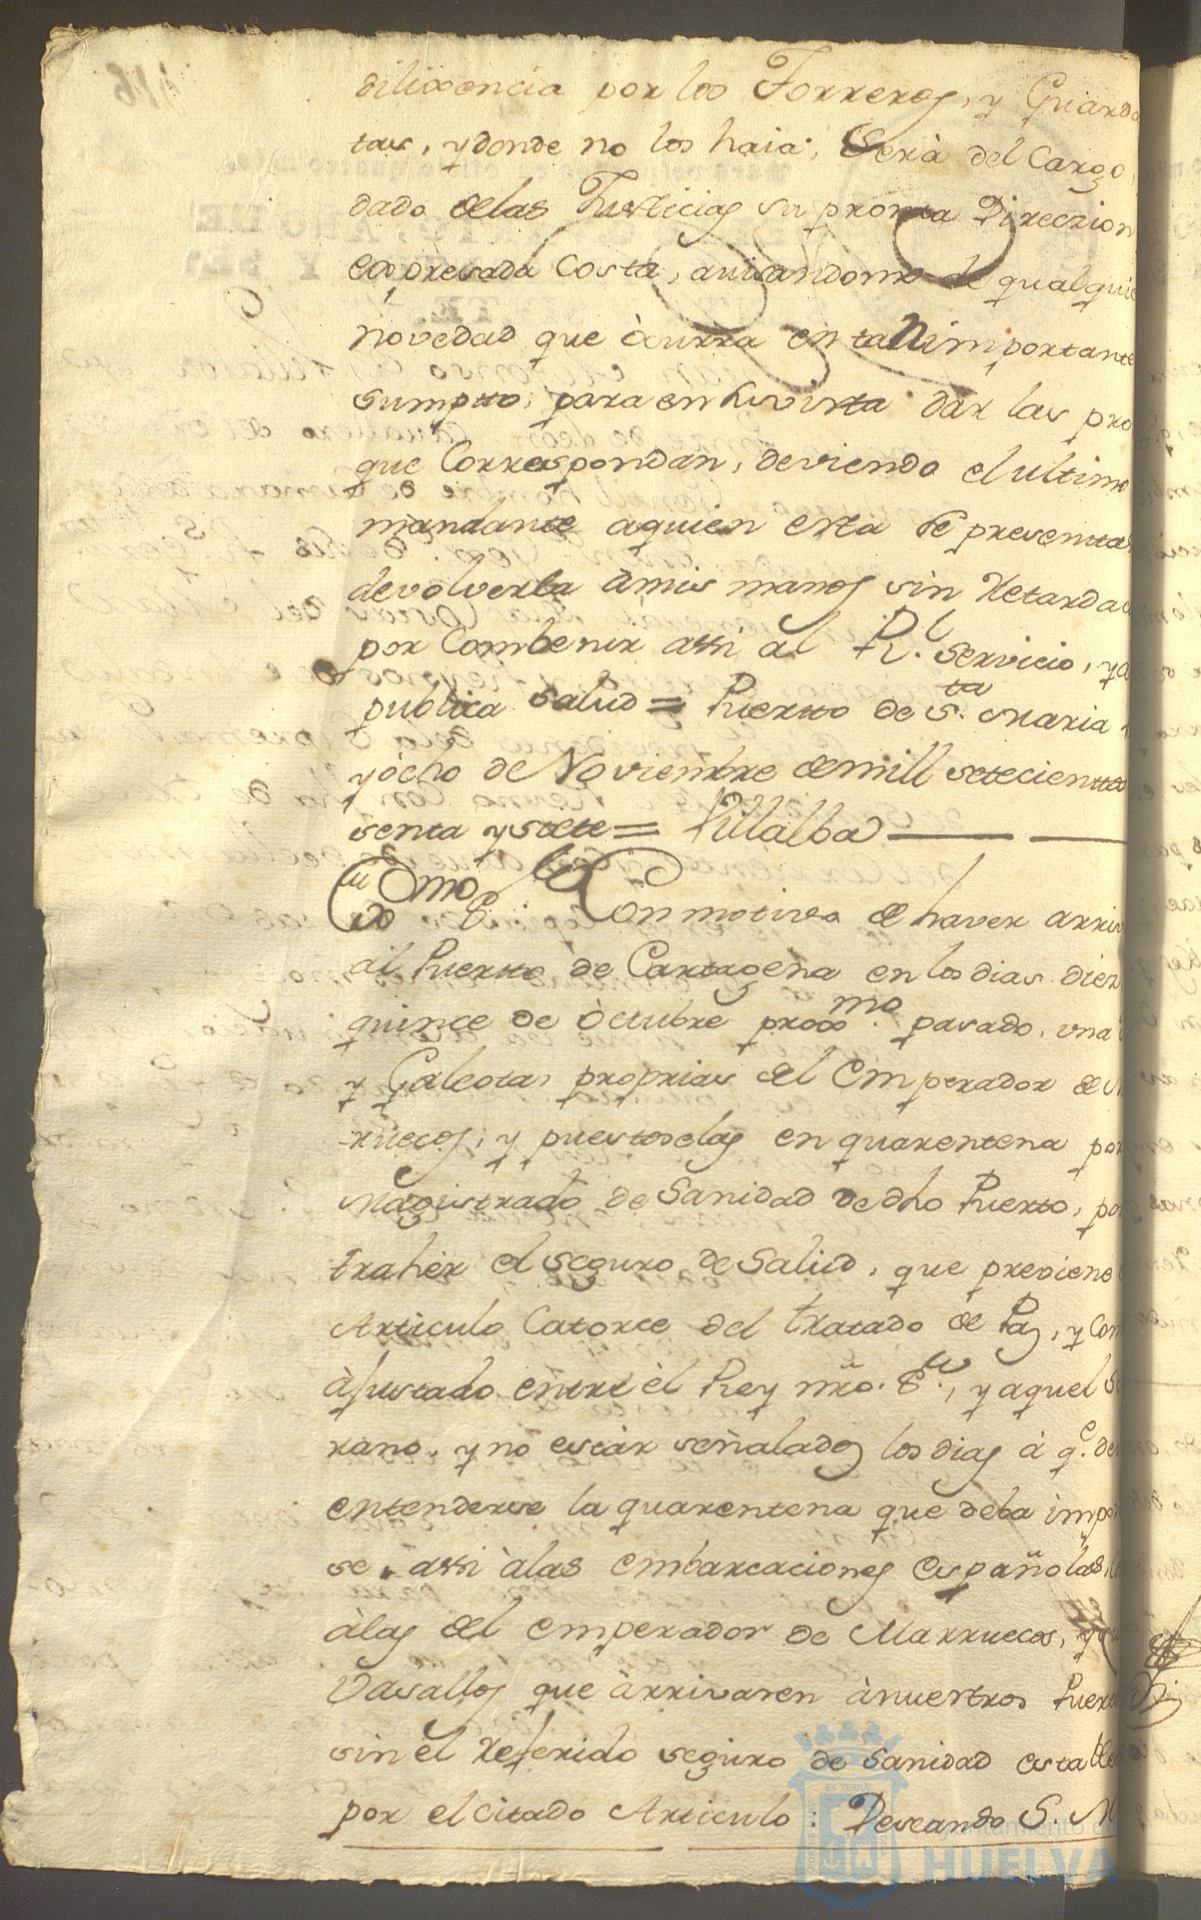 dilixencia por los Torreros, y Guarda
tas, y donde no los haia, Serà del Cargo,
dado de las Justicias su pronta Direczion
expresada Costa, avisandome de qualquie
novedad que òcurra en tan importante
sumpto, para en su vista dar las pro
que Correspondan, deviendo el ultimo
mandante aquien esta se presenta
devolverla àmis manos sin Retarda
por Combenir assi al Rl. servicio, y a
publica salud = Puerto de Sta. Maria
y òcho de Noviembre de mill setecientos
senta y siete = Villalba
Exmo. Sr. Con motivo de haver arriv
al Puerto de Cartagena en los dias diez
quince de òctubre proxmo. pasado, una
y Galeota, proprias del Emperador de M
rruecos, y puestoselas en quarentena por
Magistrado de Sanidad de dho Puerto, po
traher el seguro de Salud, que previene
Articulo Catorce del tratado de Paz, y Com
àjustado entre èl Rey nro. Sr., y aquel So
rano, y no estàr señalados los dias à qe. de
entenderse la quarentena que deba impon
se, assi àlas embarcaciones españolas,
àlas del emperador de Marruecos, y su
Vasallos que àrrivaren ànuestros Puert
sin el Referido seguro de Sanidad estable
por el citado Articulo: Deseando S. M
Ayuntamiento de
HUELVA